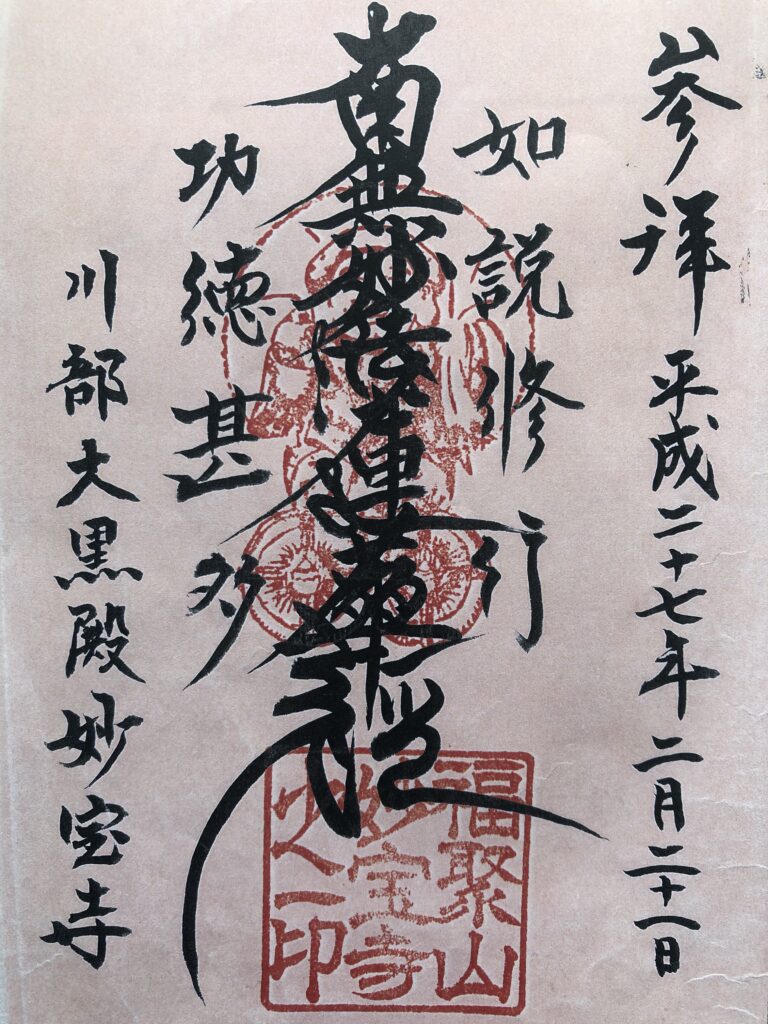 参拝 平成二十七年二月二十一日
如説修行
南無妙法蓮華経
功徳甚多
川部大黒殿妙宝寺
福聚山
妙宝寺
之印